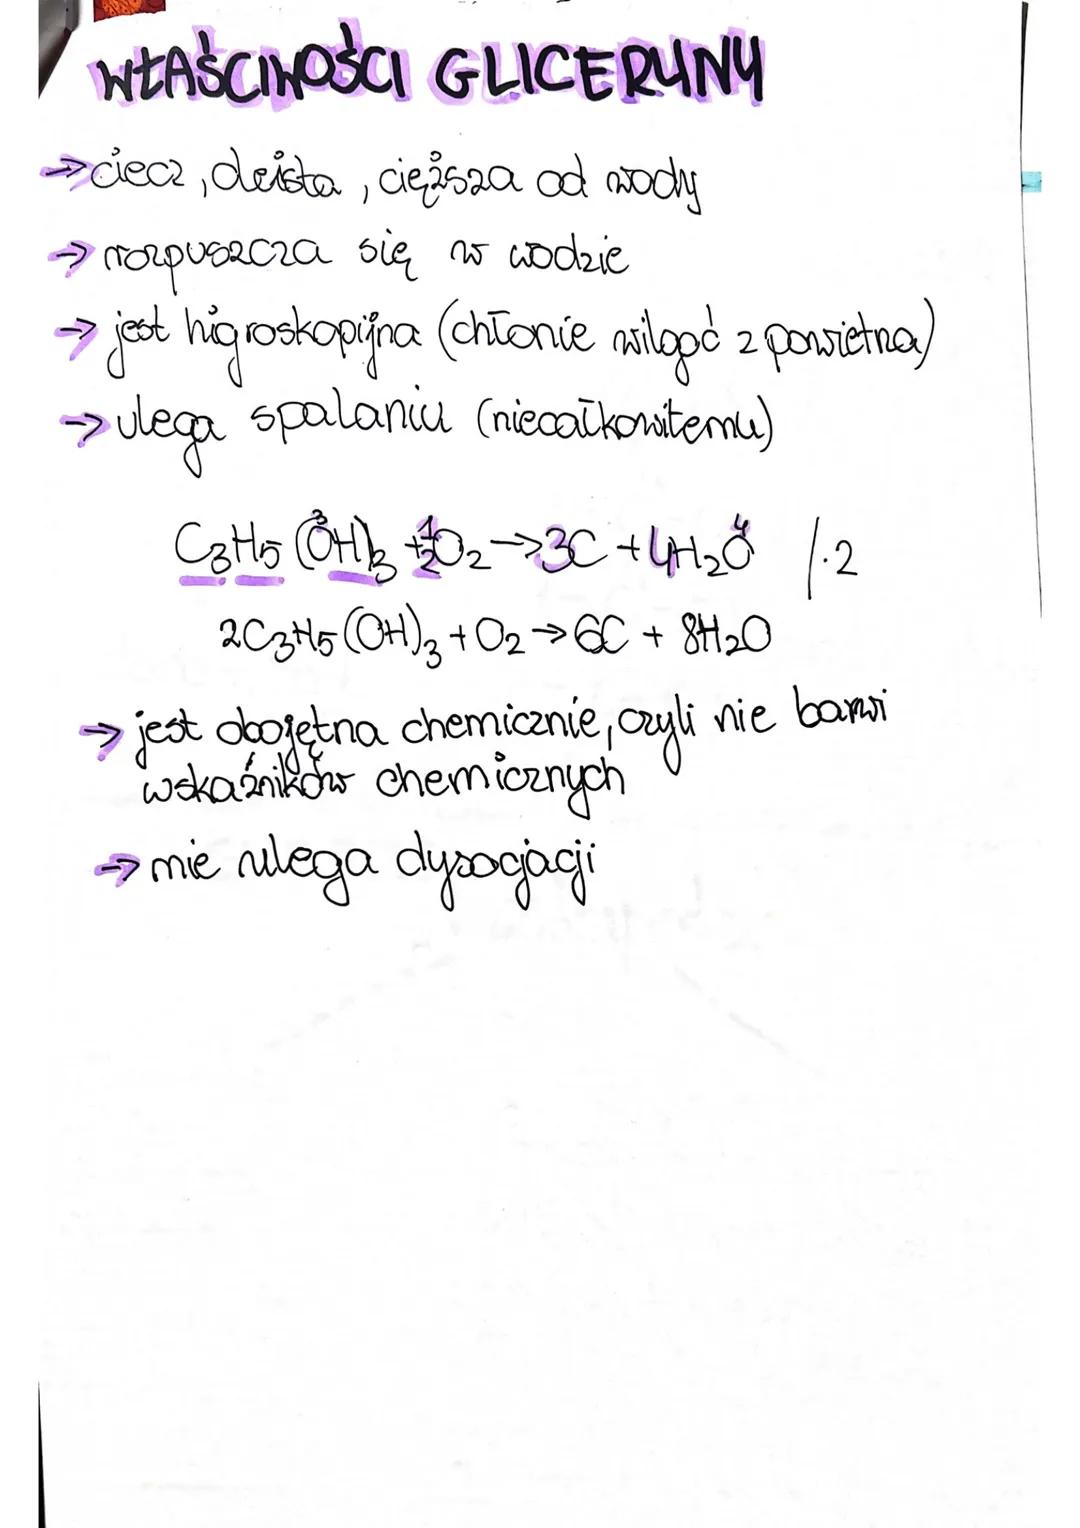 WŁAŚCIWOŚCI GLICERYNY
→ ciecz, oleista, cięższa od wody
→ rozpuszcza się w wodzie
→ jest higroskopijna (chłonie wilgoć z powietrza)
→ ulega spalaniu (niecałkowitemu)
C₃H₅(OH)₃ + ½O₂ → 3C + 4H₂O /·2
2C₃H₅(OH)₃ + O₂ → 6C + 8H₂O
→ jest obojętna chemicznie, czyli nie barwi
wskaźników chemicznych
→ nie ulega dysocjacji